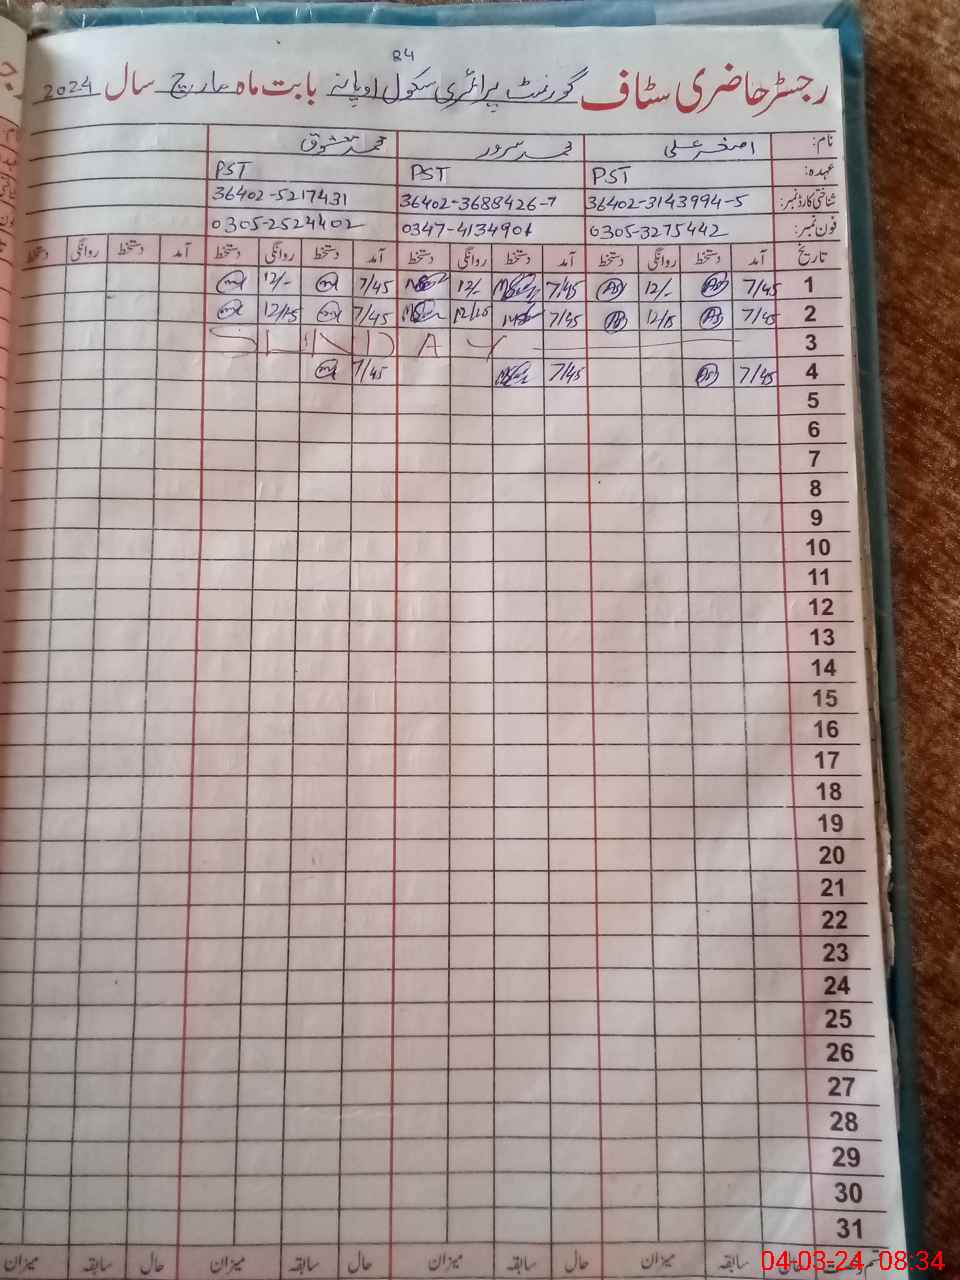 84
رجسٹر حاضری سٹاف گورنمنٹ پرائمری سکول بابت ماہ مارچ سال 2024
نام: اصغر علی محمد سرور محمد معشوق
عہدہ: PST PST PST
شناختی کارڈ نمبر: 36402-3143994-5 36402-3688426-7 36402-5217431
فون نمبر: 0305-3275442 0347-4134901 0305-2524402
تاریخ آمد دستخط روانگی دستخط آمد دستخط روانگی دستخط آمد دستخط روانگی دستخط آمد دستخط روانگی دستخط
1 7/45 12/- 7/45 12/- 7/45 12/-
2 7/45 12/15 7/45 12/15 7/45 12/15
3 SUNDAY
4 7/45 7/45 7/45
5
6
7
8
9
10
11
12
13
14
15
16
17
18
19
20
21
22
23
24
25
26
27
28
29
30
31
حال سابقہ میزان حال سابقہ میزان حال سابقہ میزان
04-03-24 08:34